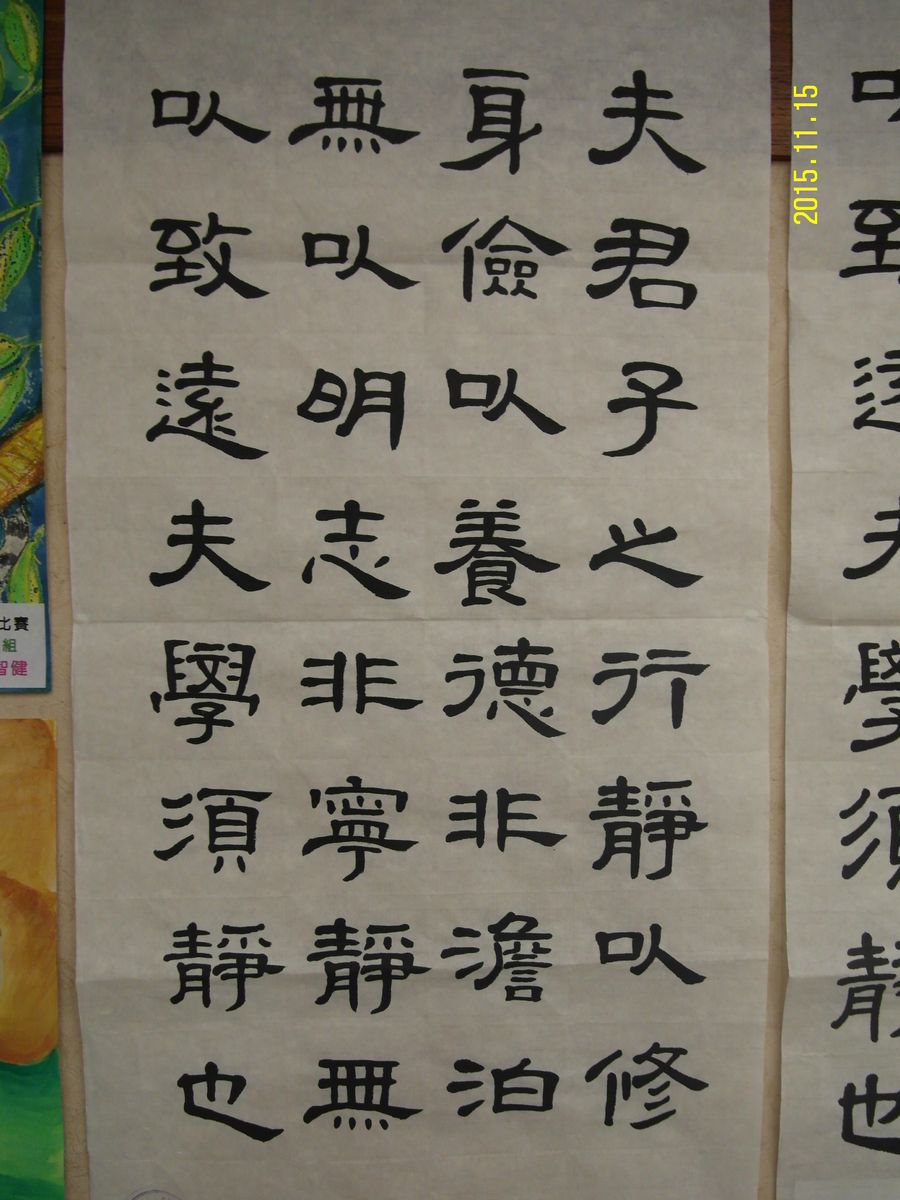 夫君子之行靜以修
身儉以養德非澹泊
無以明志非寧靜無
以致遠夫學須靜也
以致遠夫學須靜也
2015.11.15
比賽
組
智健